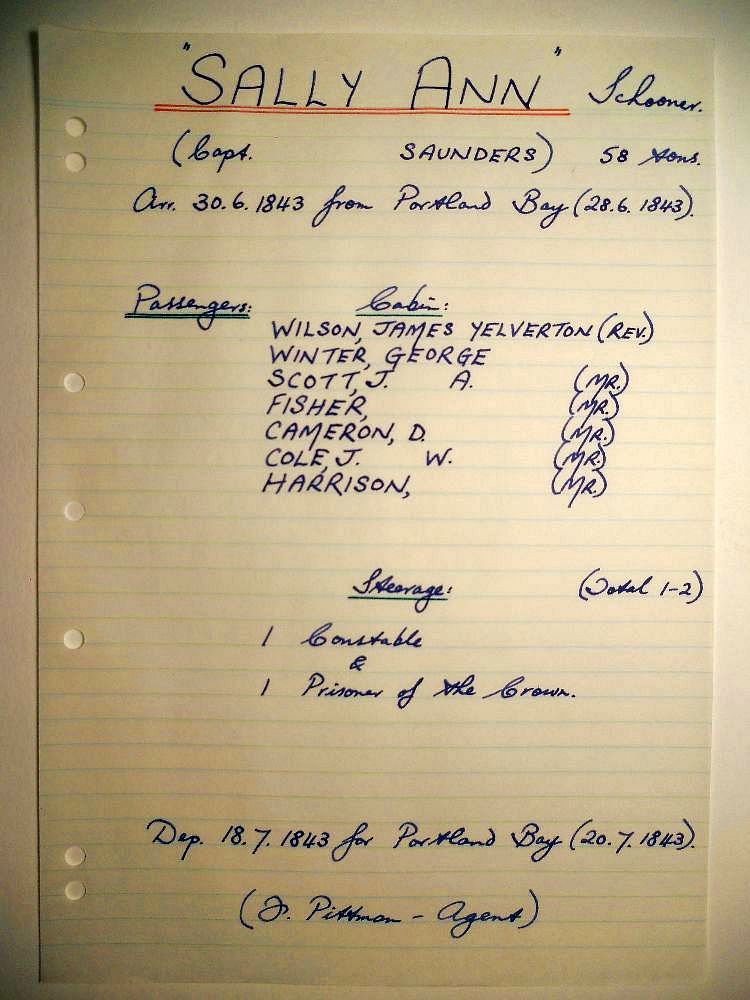 "SALLY ANN" Schooner.
(Capt. SAUNDERS) 58 tons.
Arr. 30.6.1843 from Portland Bay (28.6.1843).
Passengers: Cabin:
WILSON, JAMES YELVERTON (REV.)
WINTER, GEORGE
SCOTT, J. A. (MR.)
FISHER, (MR.)
CAMERON, D. (MR.)
COLE, J. W. (MR.)
HARRISON, (MR.)
Steerage: (Total 1-2)
1 Constable
&
1 Prisoner of the Crown.
Dep. 18.7.1843 for Portland Bay (20.7.1843).
(J. Pittman - Agent)